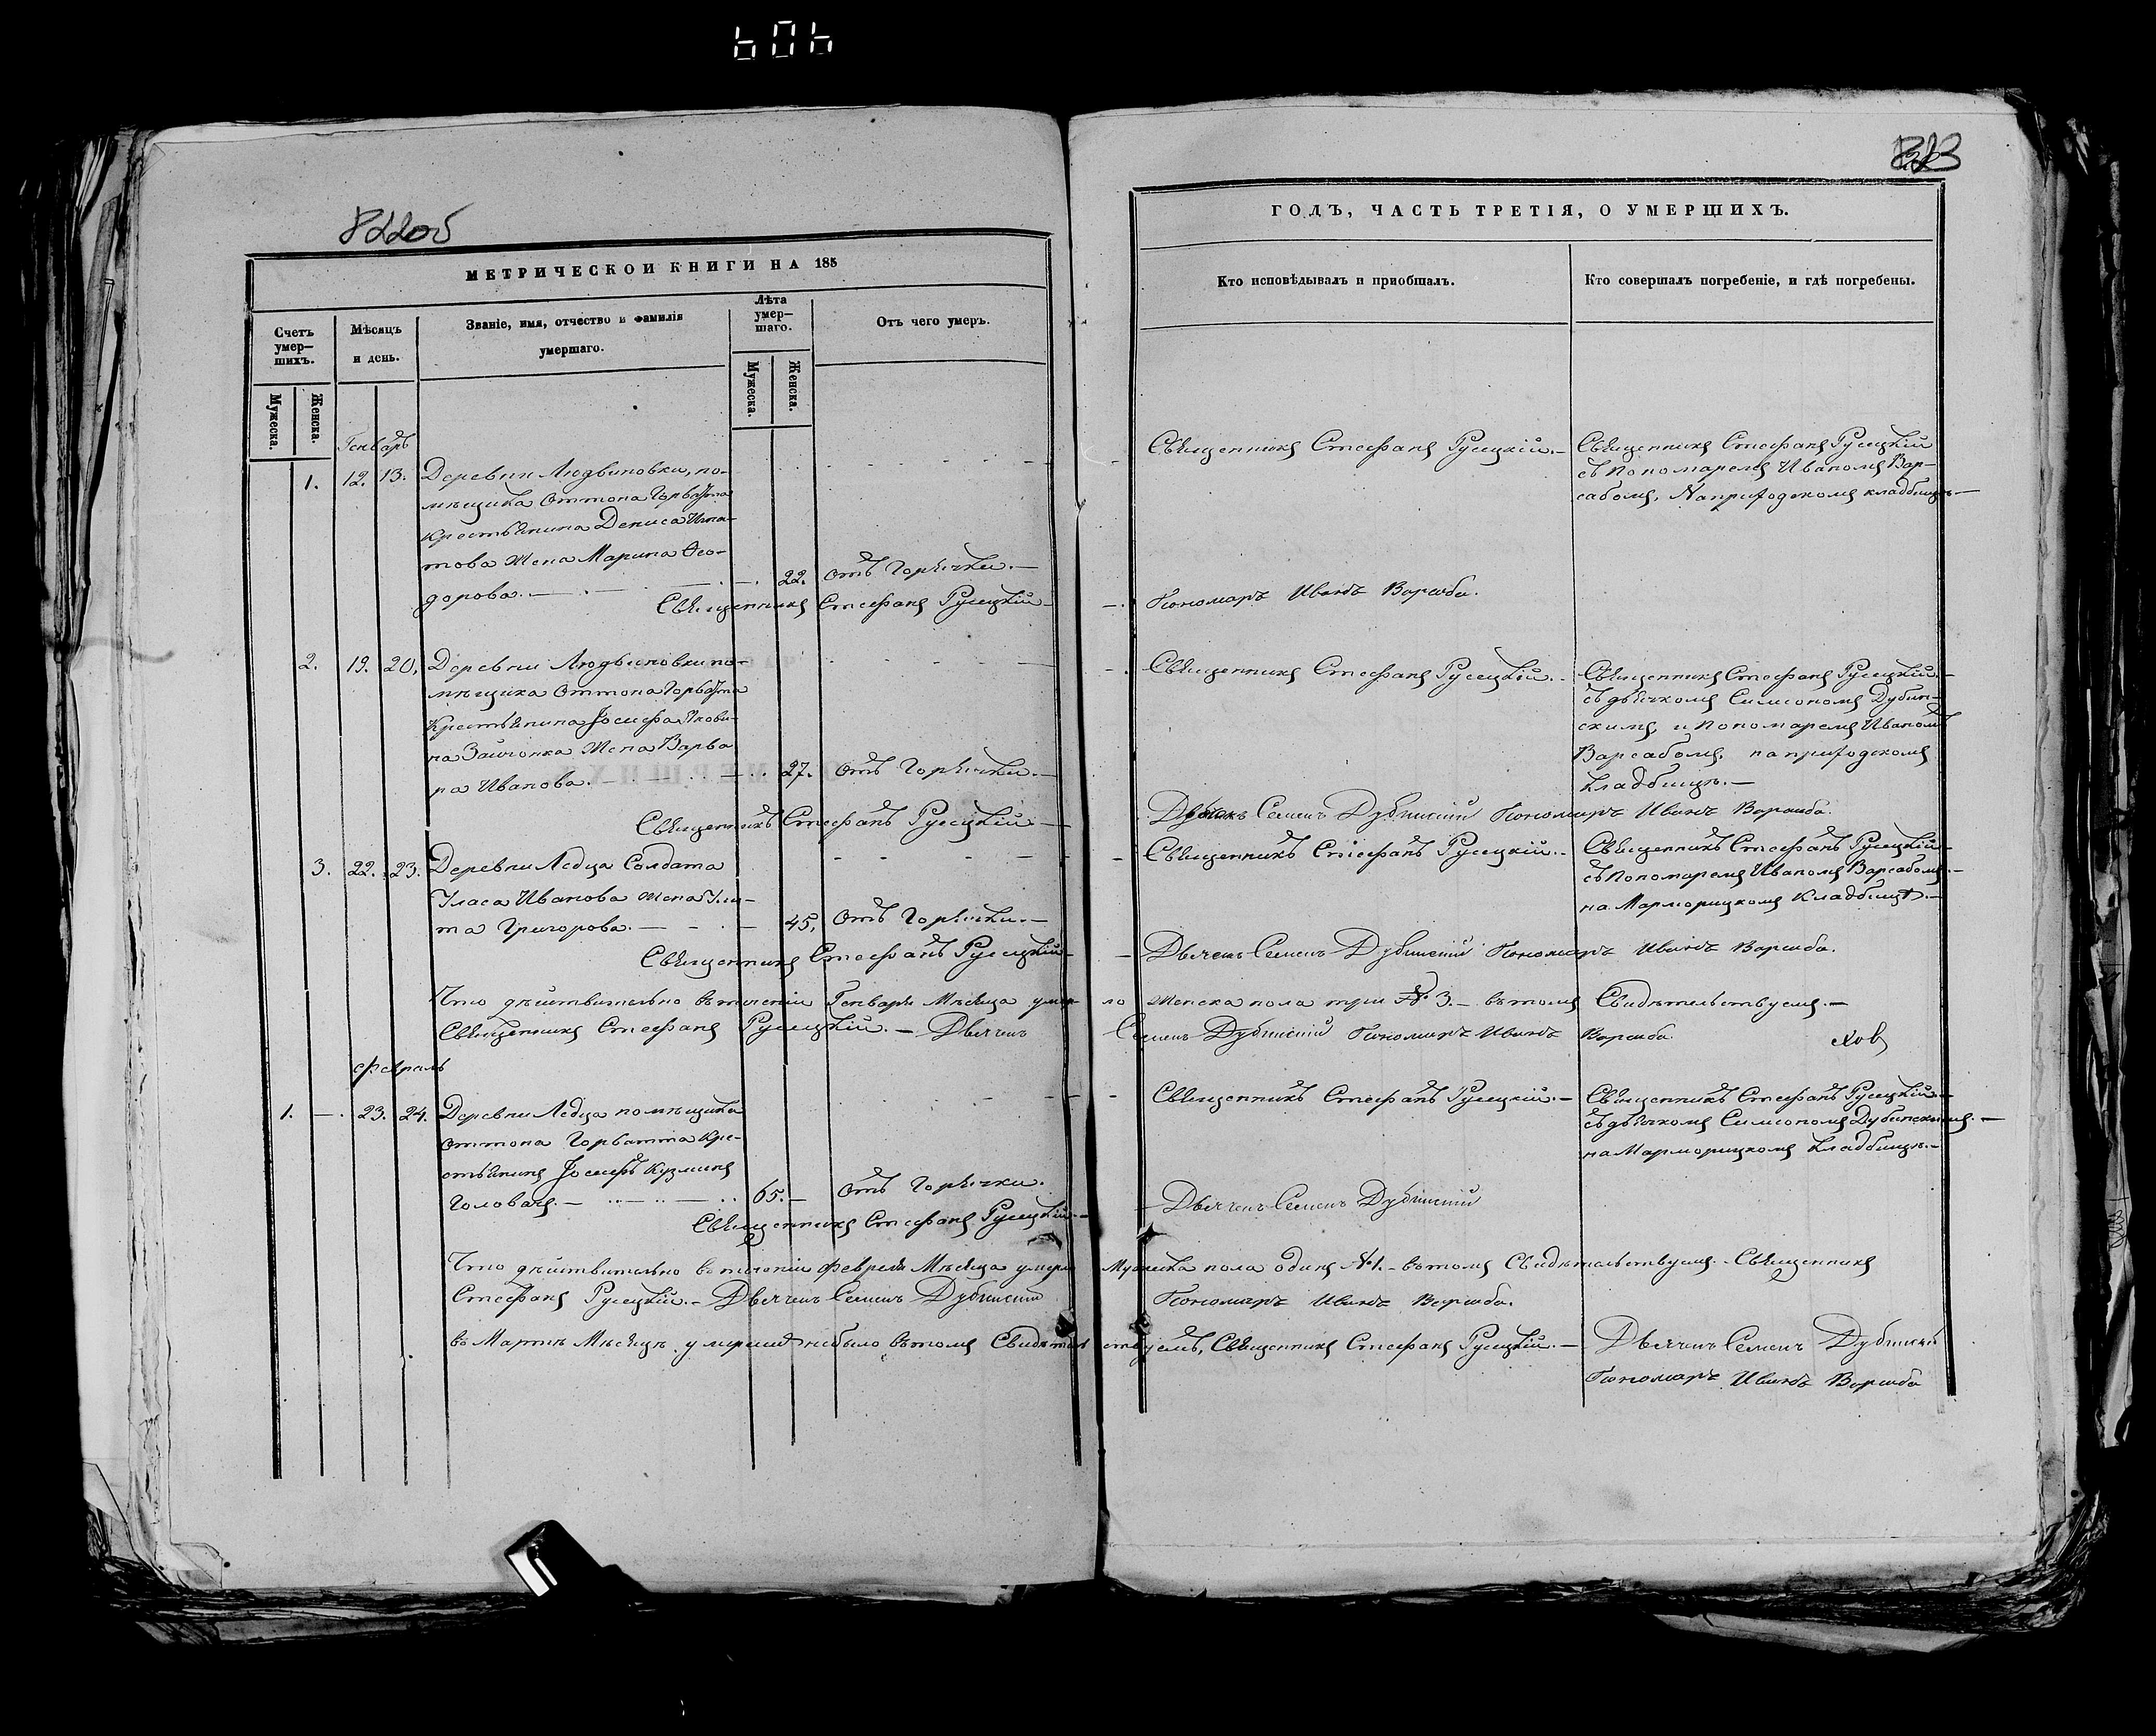 822об
МЕТРИЧЕСКОИ КНИГИ НА 185
Счетъ умер—шихъ.
Мужеска.
Женска.
Мѣсяцъ и день.
Званіе, имя, отчество и фамилія умершаго.
Лѣта умер—шаго.
Мужеска.
Женска.
Отъ чего умеръ.
Генварь
1. 12. 13. Деревни Людвиновки, по-
мѣщика Оттона Горватта
крестьянина Дениса Игна-
това жена Марина Ѳео-
дорова. 22. Отъ Горячки.
Священникъ Стефанъ Русецкій
2. 19. 20. Деревни Людвиновки по-
мѣщика Оттона Горватта
Крестьянина Іосифа Якови-
на Зайчонка жена Варва
ра Иванова. 27. Отъ Горячки.
Священникъ Стефанъ Русецкій
3. 22. 23. Деревни Ледца Солдата
Власа Иванова жена Ули-
та Григорова. 45. Отъ Горячки.
Священникъ Стефанъ Русецкій
Что дѣйствительно въ теченіи Генваря Мѣсяца умер-
Священникъ Стефанъ Русецкій. Дьячекъ
Февраль
1. — 23. 24. Деревни Ледца помѣщика
Оттона Горватта Кре-
стьянинъ Іосифъ Кузминъ
Головачъ. 65. Отъ Горячки.
Священникъ Стефанъ Русецкій
Что дѣйствительно въ теченіи Февраля Мѣсяца умерло
Стефанъ Русецкій. Дьячекъ Семенъ Дубинскій
въ Мартѣ Мѣсяцѣ умершихъ небыло въ томъ Свидѣтель
ГОДЪ, ЧАСТЬ ТРЕТІЯ, О УМЕРШИХЪ.
Кто исповѣдывалъ и приобщалъ.
Кто совершалъ погребеніе, и гдѣ погребены.
Священникъ Стефанъ Русецкій. Священникъ Стефанъ Русецкій
съ Пономаремъ Иваномъ Вар-
сабомъ, На приходскомъ кладбищѣ
Пономарь Иванъ Варсаба.
Священникъ Стефанъ Русецкій. Священникъ Стефанъ Русецкій
съ дьячкомъ Симеономъ Дубин-
скимъ, и Пономаремъ Иваномъ
Варсабомъ, на приходскомъ
Кладбищѣ.
Дьячекъ Семенъ Дубинскій Пономарь Иванъ Варсаба.
Священникъ Стефанъ Русецкій. Священникъ Стефанъ Русецкій
съ Пономаремъ Иваномъ Варсабомъ
на Марморицкомъ Кладбищѣ.
Дьячекъ Семенъ Дубинскій Пономарь Иванъ Варсаба.
ло женска пола три № 3. въ томъ Свидѣтельствуемъ.
Семенъ Дубинскій Пономарь Иванъ Варсаба.
Священникъ Стефанъ Русецкій. Священникъ Стефанъ Русецкій
съ дьячкомъ Симеономъ Дубинскимъ.
на Марморицкомъ Кладбищѣ.
Дьячекъ Семенъ Дубинскій
Мужеска пола одинъ №1. въ томъ Свидѣтельствуемъ. Священникъ
Пономарь Иванъ Варсаба.
ствуемъ, Священникъ Стефанъ Русецкій. Дьячекъ Семенъ Дубинскій
Пономарь Иванъ Варсаба